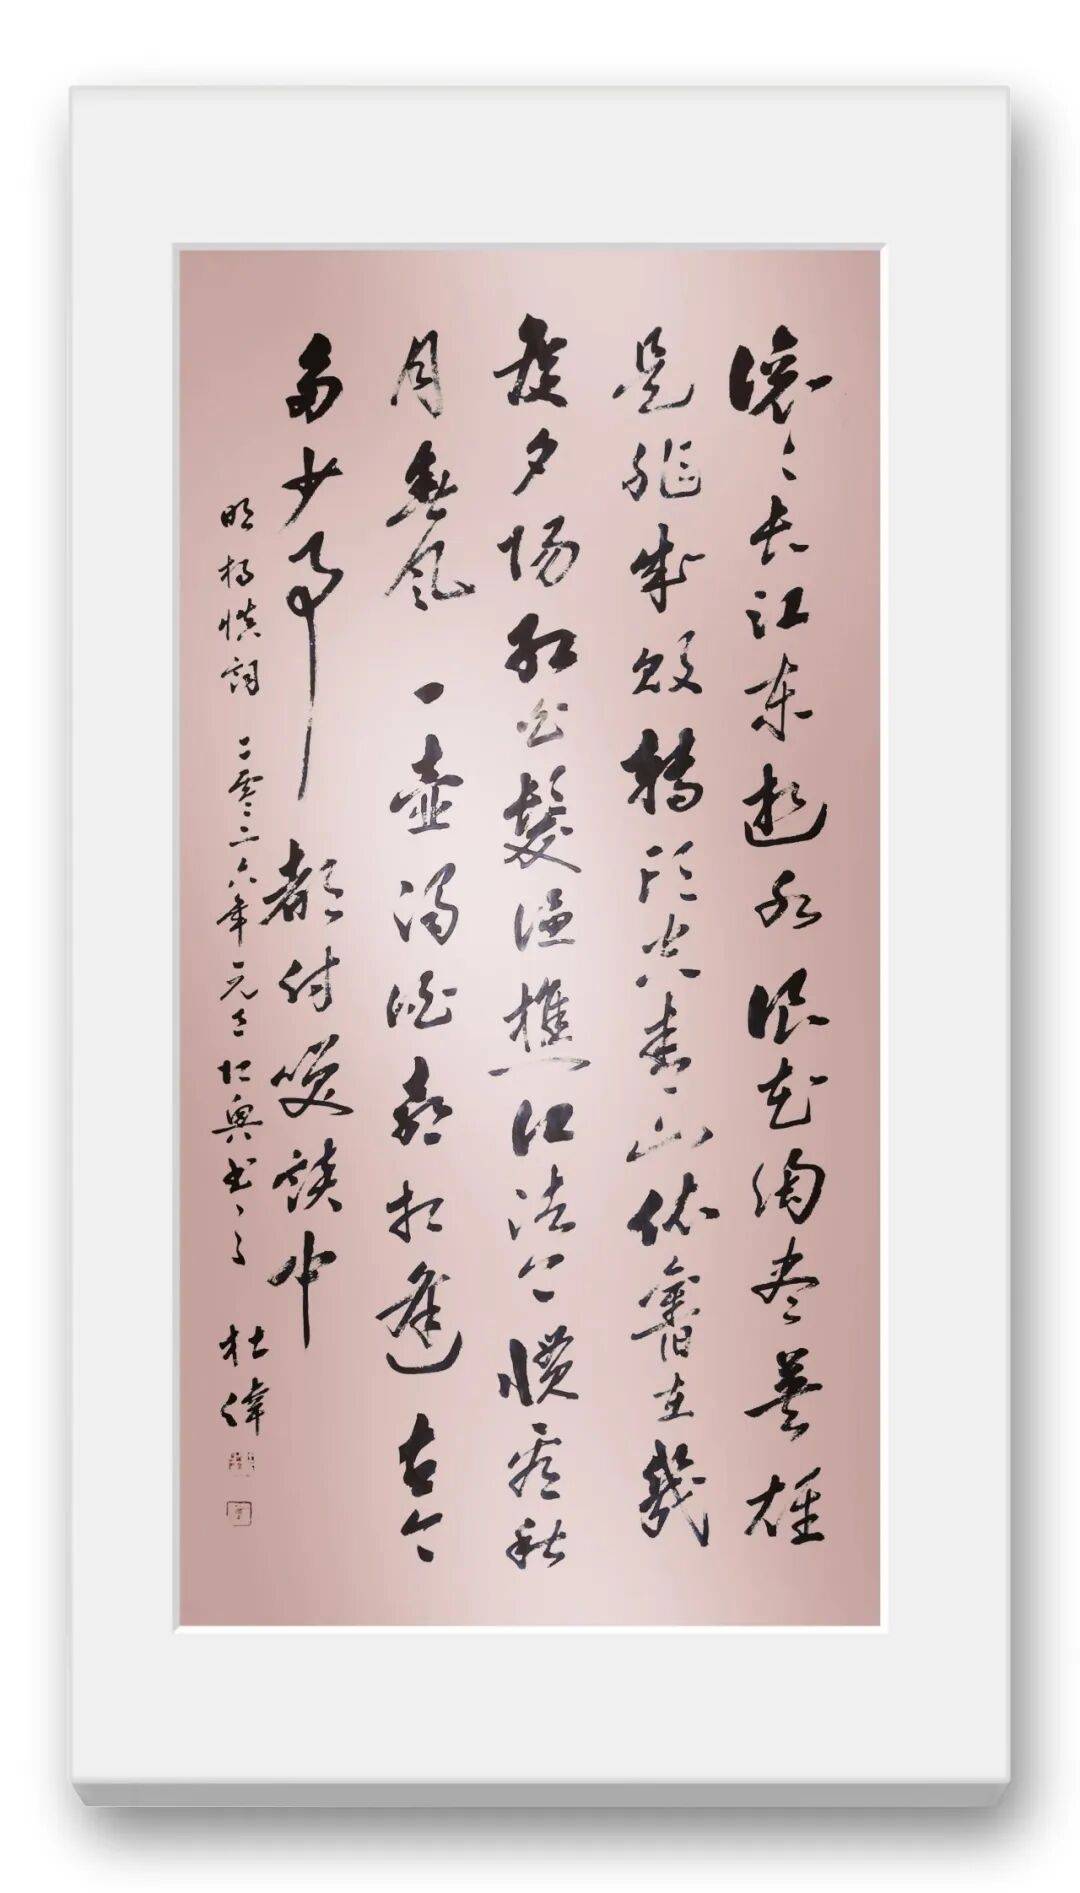 滚〻长江东逝水浪花淘尽英雄
是非成败转头空青山依舊在幾
度夕阳红白髮渔樵江渚上惯看秋
月春风一壶浊酒喜相逢古今
多少事都付笑谈中
明杨慎词二零二六年元旦 书 杜偉